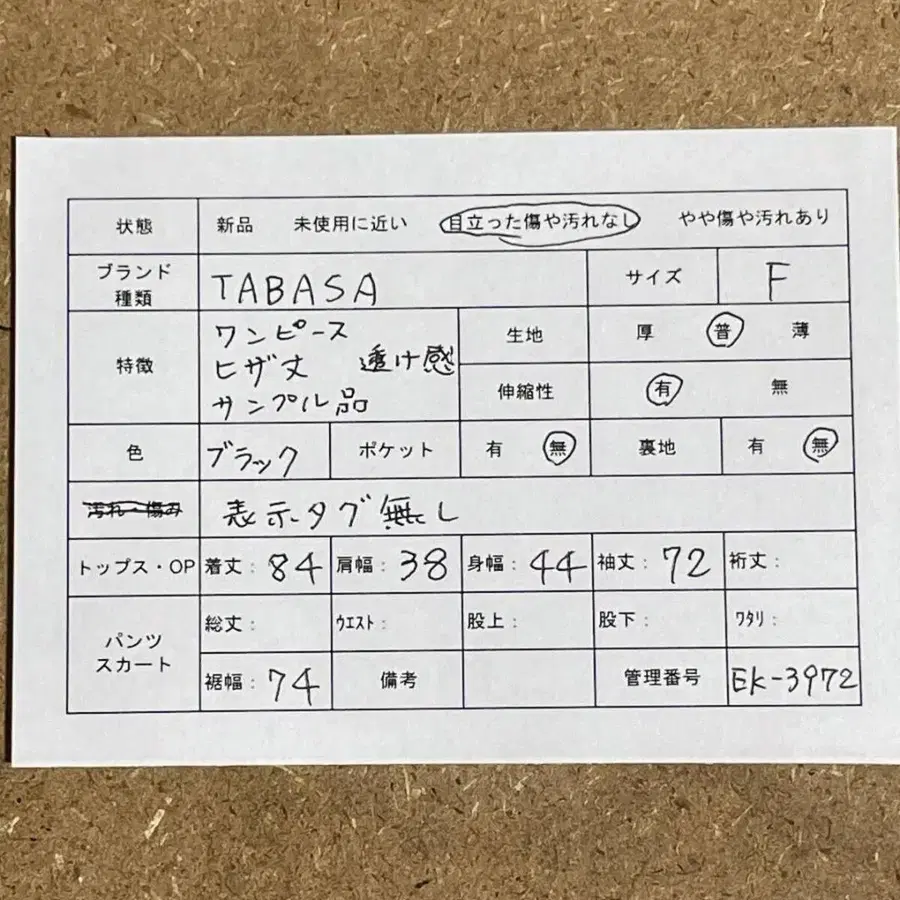 状態 新品 未使用に近い 目立った傷や汚れなし やや傷や汚れあり
ブランド
種類 TABASA サイズ F
特徴 ワンピース
ヒザ丈 透け感
サンプル品
生地 厚 普 薄
伸縮性 有 無
色 ブラック ポケット 有 無 裏地 有 無
汚れ・傷み 表示タグ無し
トップス・OP 着丈: 84 肩幅: 38 身幅: 44 袖丈: 72 裄丈:
パンツ
スカート
総丈: ウエスト: 股上: 股下: ワタリ:
裾幅: 74 備考 管理番号 EK-3972